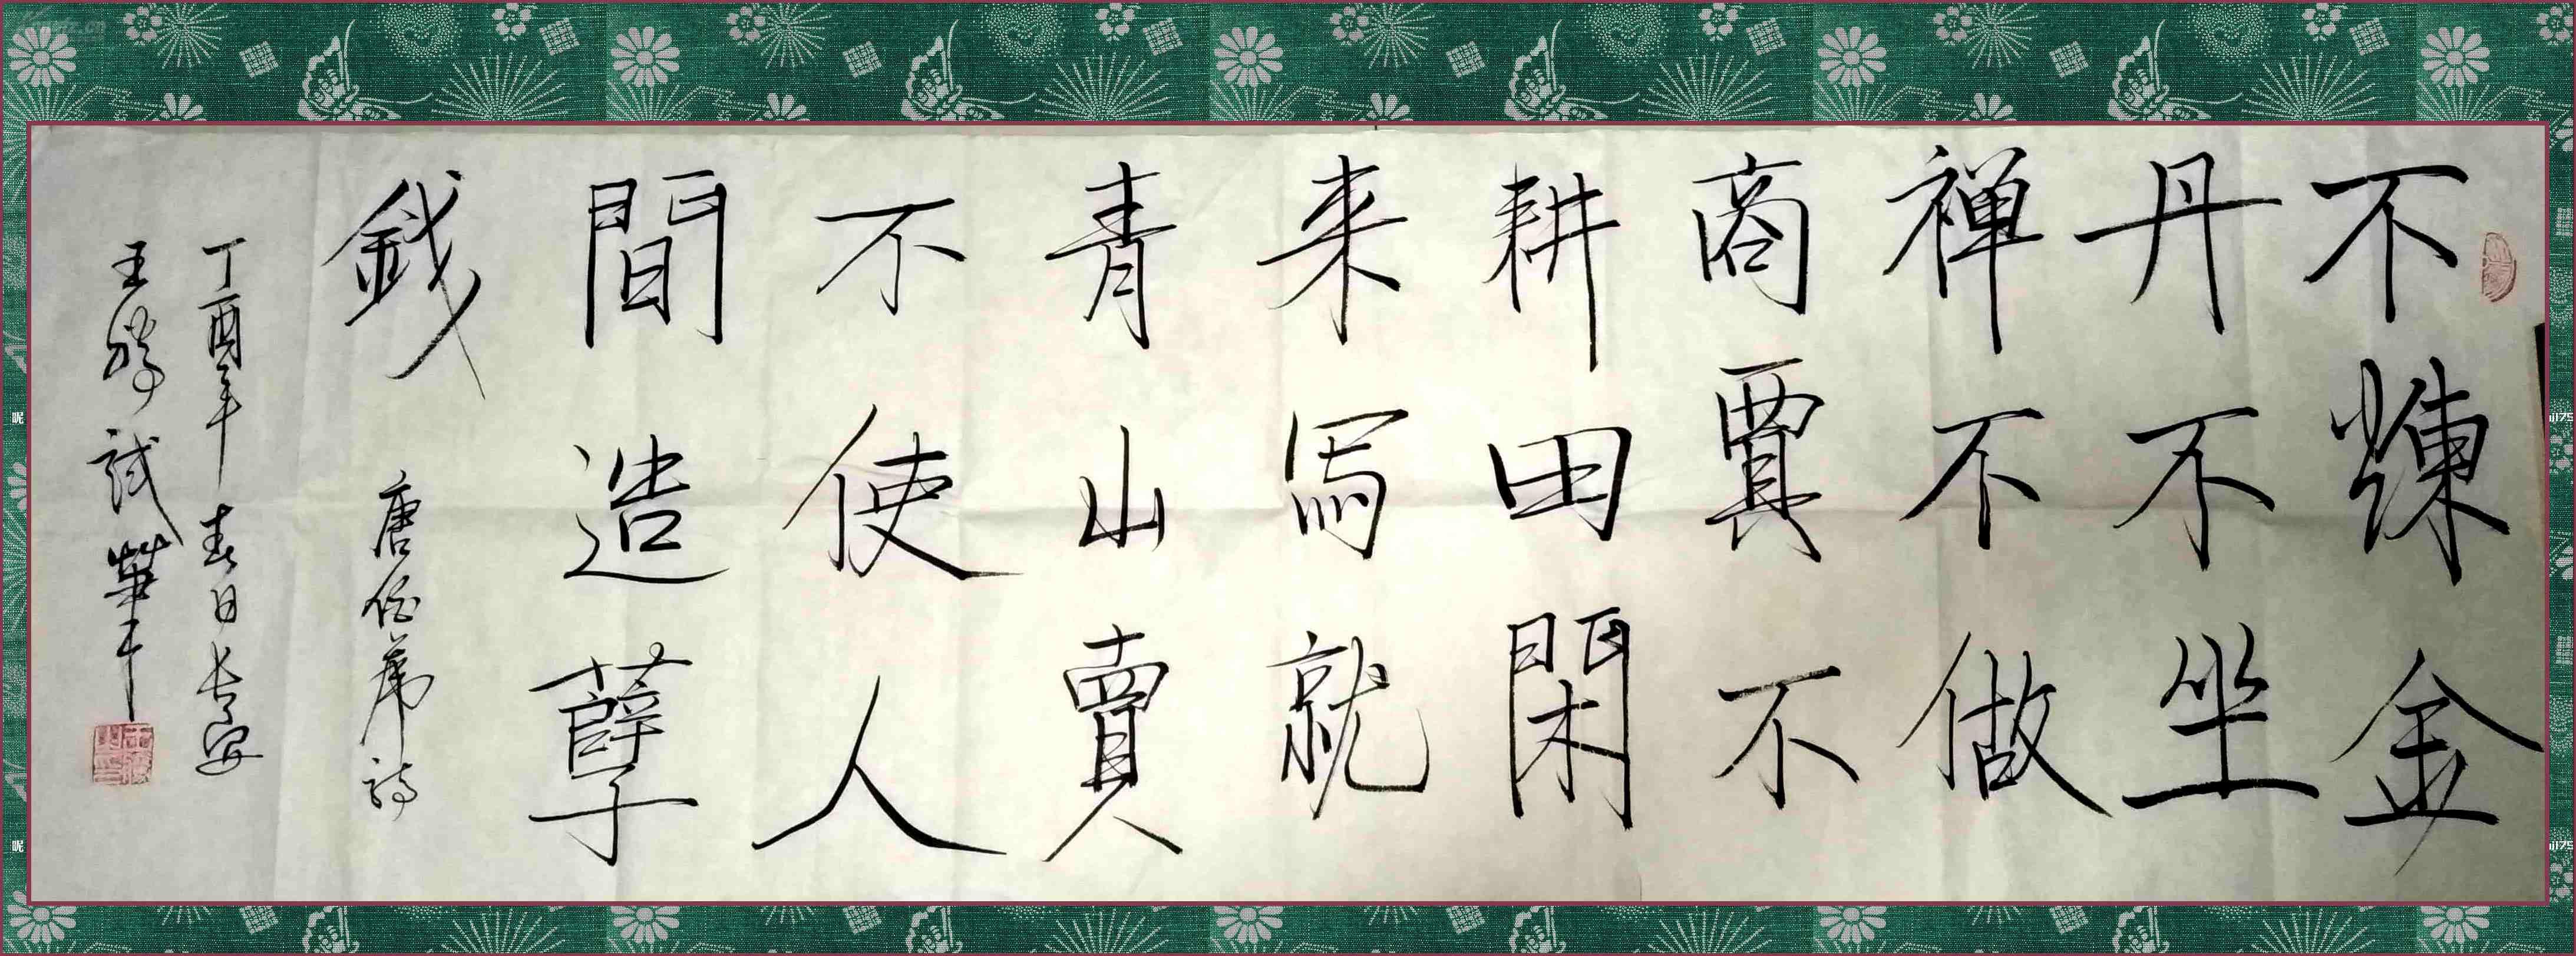 不煉金
丹不坐
禅不做
商賈不
耕田閑
来寫就
青山賣
不使人
間造孽
錢 唐伯虎詩
丁酉年春日長安
王勝試華干